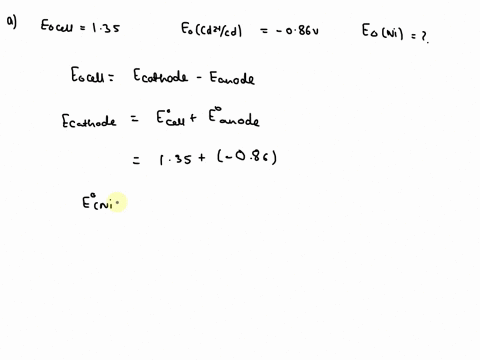 a) E₀cell = 1.35 E₀(Cd²⁺/Cd) = -0.86v E₀(Ni) = ?.
E₀cell = Ecathode - Eanode
Ecathode = E°cell + E°anode
= 1.35 + (-0.86)
E°(Ni